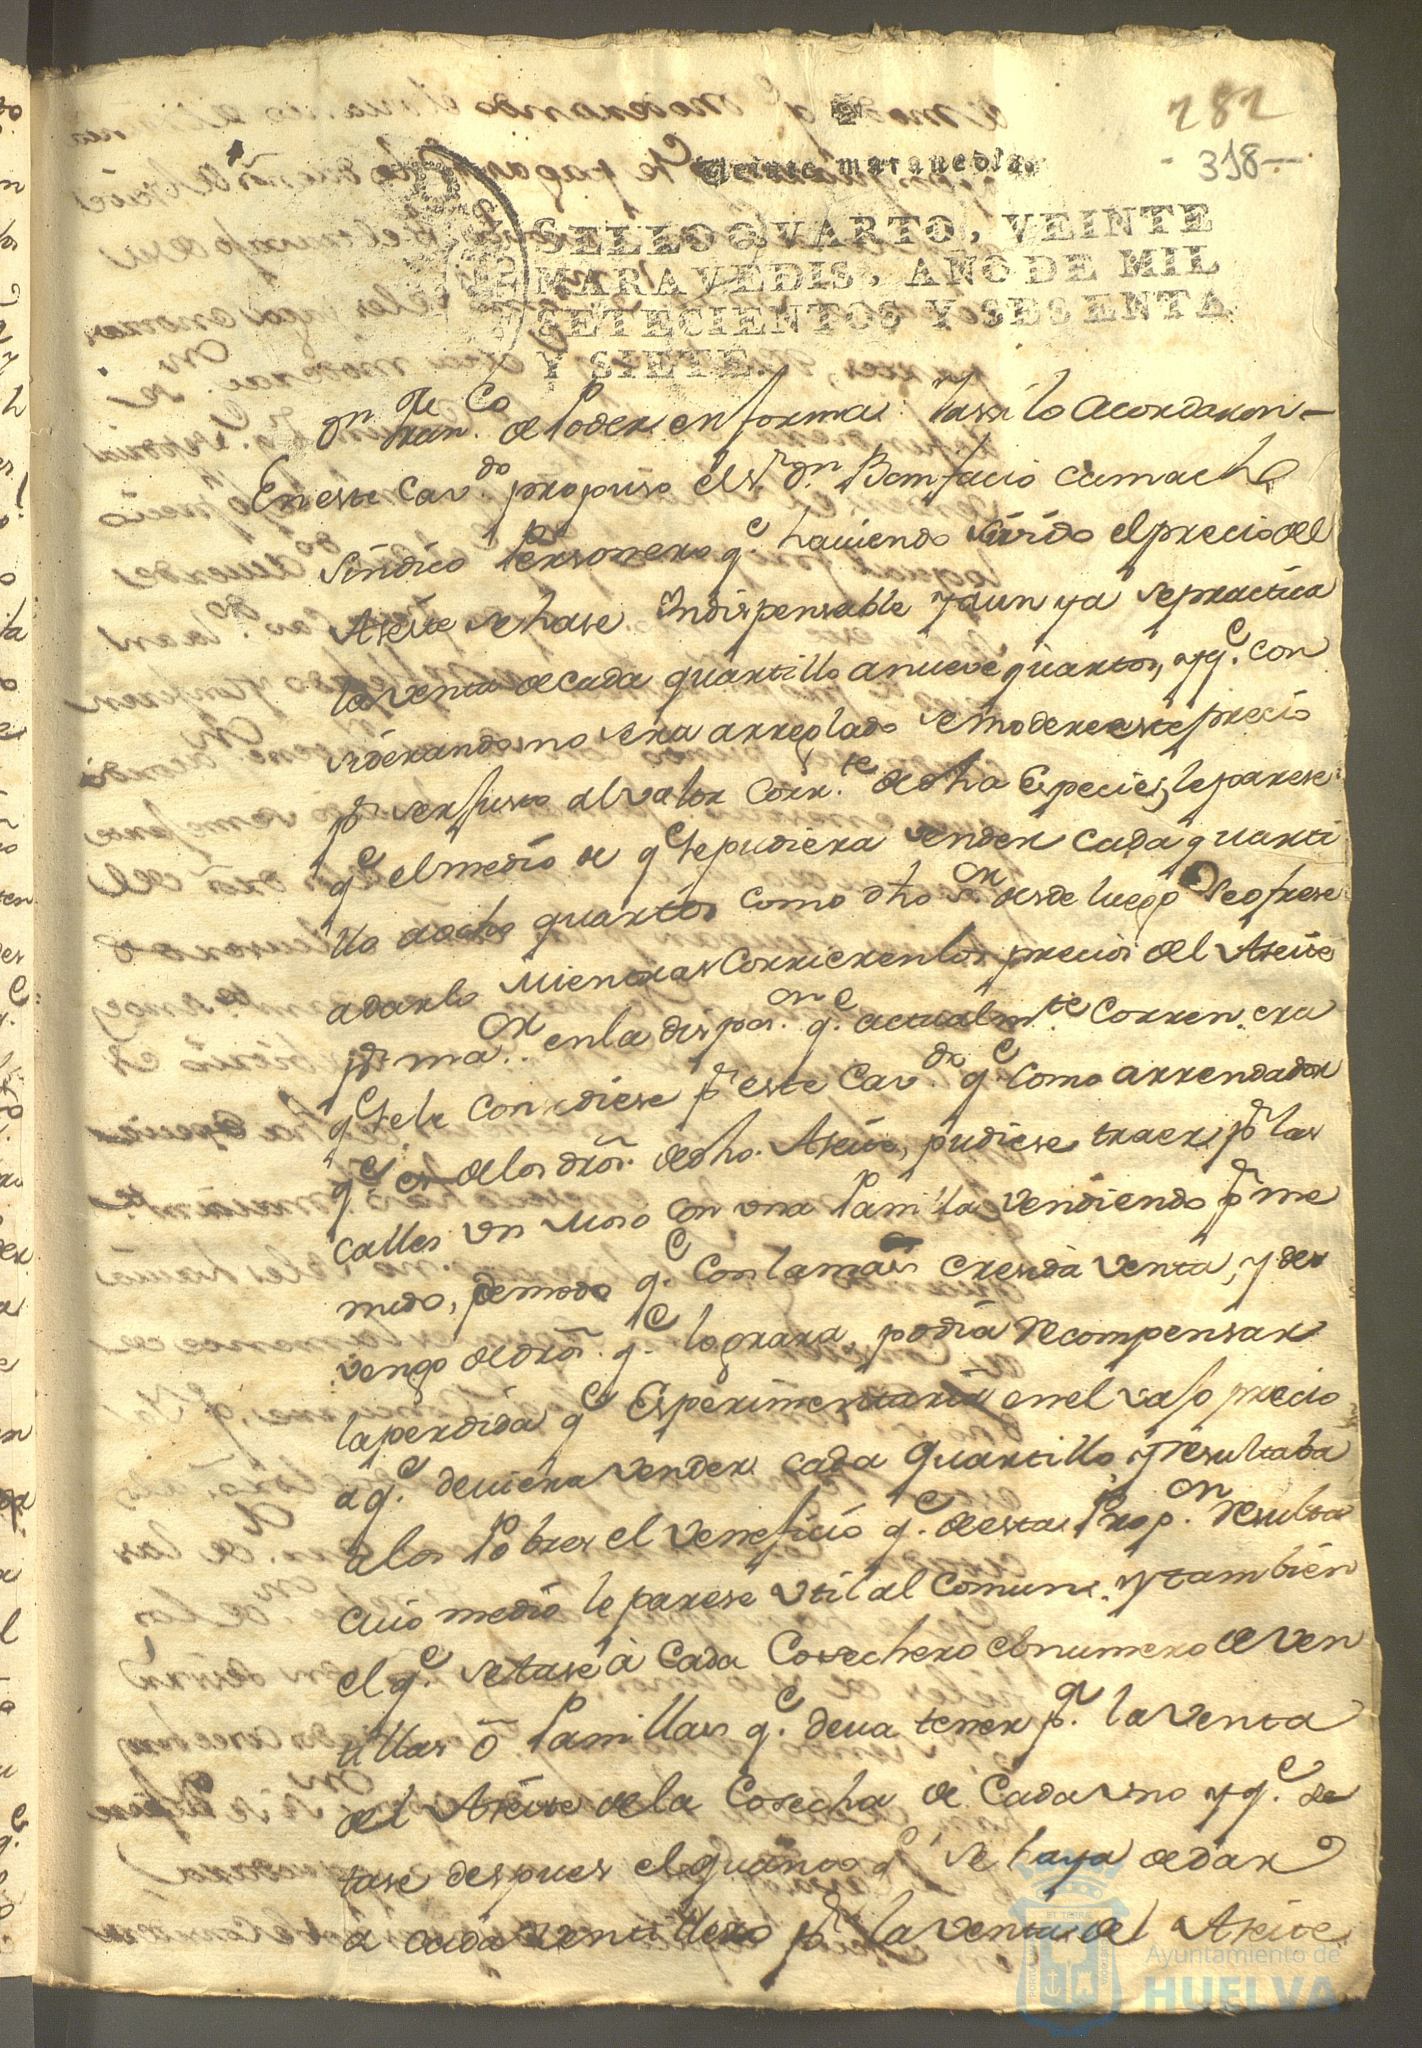 282
318
Veinte maravedis.
SELLO QVARTO, VEINTE
MARAVEDIS, AÑO DE MIL
SETECIENTOS Y SESENTA
Y SIETE.
Dn. Franco. de Poder en forma. Y assi lo acordaron
En este Cavdo. propuso el Sr. Dn. Bonifacio Camacho
Sindico Personero qe. haviendo suvido el precio del
Aseite se hase Indispensable y aun ya se practica
la venta de cada quartillo a nueve quartos, y qe. con
siderando no sera arreglado se modere este precio
pr. ser justo al valor Corrte. de dha Especie, le parese
qe. el medio de qe. se pudiera vender cada quarti
llo a ocho quartos como dho Sr. desde luego se ofrese
a darlo Mientras Corrieren los precios del Aseite
en la disposon. qe. actualmte. Corren. era
qe. se le Consediese pr. este Cavdo. qe. como arrendador
qe. es de los dros. de dho. Aseite, pudiese traer pr. las
calles un Moso con una Panilla vendiendo pr. me
nudo, de modo qe. con la mas cresida venta, y de
vengo de dros. qe. lograra, podia recompensar
la perdida qe. Esperimentaria en el vajo precio
a qe. deviera vender cada quartillo, y resultaba
a los Pobres el veneficio qe. de esta Propon. resulta
cuio medio le parese util al Comun. y tambien
el qe. se tase à cada Cosechero el numero de ven
tillas ó Panillas qe. deva tener pa. la venta
del Aseite de la Cosecha de Cada uno y qe. se
tase despues el quanto qe. se haya de dar
a cada ventillero pr. la venta del Aseite
Ayuntamiento de
HUELVA